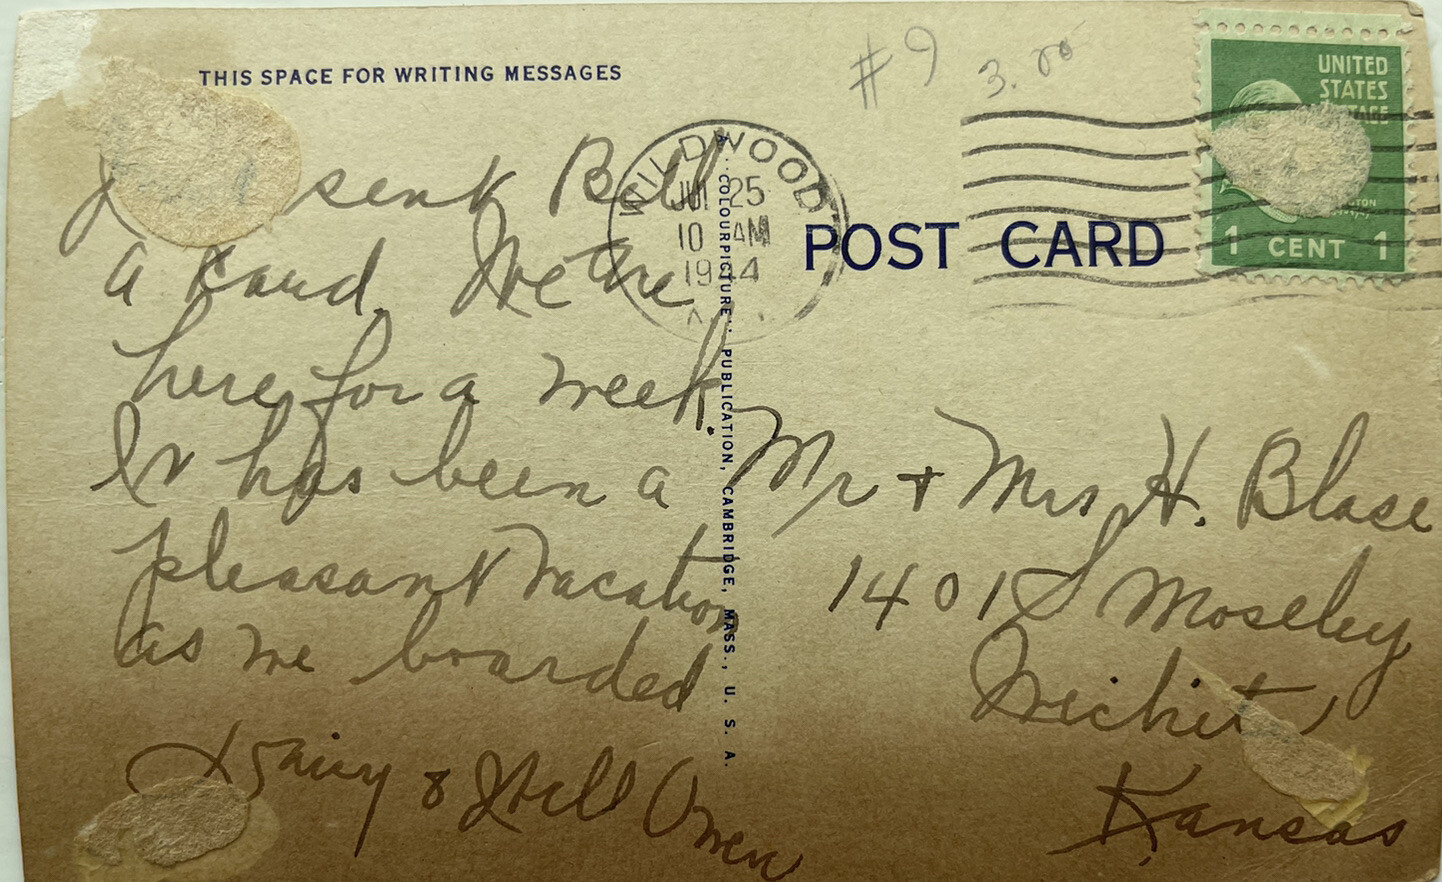 THIS SPACE FOR WRITING MESSAGES
#9 3.00
UNITED
STATES
1 CENT 1
WILDWOOD
JUL 25
10 AM
1944
POST CARD
"COLOURPICTURE" PUBLICATION, CAMBRIDGE, MASS., U. S. A.
sent Bill
a card. We are
here for a week.
It has been a
pleasant vacation
as we boarded
Daisy & Will Owen
Mr + Mrs H. Blase
1401 S Moseley
Wichit
Kansas